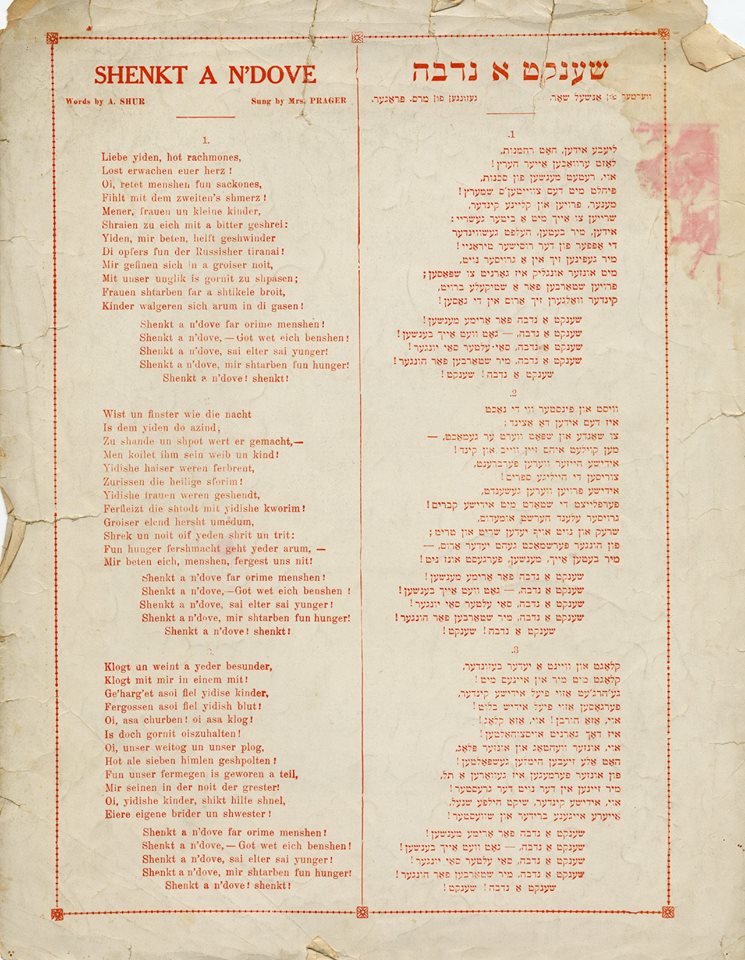 SHENKT A N'DOVE
Words by A. SHUR Sung by Mrs. PRAGER
1.
Liebe yiden, hot rachmones,
Lost erwachen euer herz !
Oi, retet menshen fun sackones,
Fihlt mit dem zweiten's shmerz !
Mener, frauen un kleine kinder,
Shraien zu eich mit a bitter geshrei :
Yiden, mir beten, helft geshwinder
Di opfers fun der Russisher tiranai !
Mir gefinen sich in a groiser noit,
Mit unser unglik is gornit zu shpasen ;
Frauen shtarben far a shtikele broit,
Kinder walgeren sich arum in di gasen !
Shenkt a n'dove far orime menshen !
Shenkt a n'dove, — Got wet eich benshen !
Shenkt a n'dove, sai elter sai yunger!
Shenkt a n'dove, mir shtarben fun hunger!
Shenkt a n'dove! shenkt!
Wist un finster wie die nacht
Is dem yiden do azind,
Zu shande un shpot wert er gemacht,—
Men koilet ihm sein weib un kind !
Yidishe haiser weren ferbrent,
Zurissen die heilige sforim !
Yidishe frauen weren geshendt,
Ferfleizt die shtodt mit yidishe kworim !
Groiser elend hersht umedum,
Shrek un noit oif yeden shrit un trit :
Fun hunger fershmacht geht yeder arum, —
Mir beten eich, menshen, fergest uns nit !
Shenkt a n'dove far orime menshen !
Shenkt a n'dove, —Got wet eich benshen !
Shenkt a n'dove, sai elter sai yunger !
Shenkt a n'dove, mir shtarben fun hunger!
Shenkt a n'dove! shenkt!
Klogt un weint a yeder besunder,
Klogt mit mir in einem mit !
Ge'harg'et asoi fiel yidise kinder,
Fergossen asoi fiel yidish blut !
Oi, asa churben! oi asa klog!
Is doch gornit oiszuhalten !
Oi, unser weitog un unser plog,
Hot ale sieben himlen geshpolten !
Fun unser fermegen is geworen a teil,
Mir seinen in der noit der grester!
Oi, yidishe kinder, shikt hilfe shnel,
Eiere eigene brider un shwester !
Shenkt a n'dove far orime menshen !
Shenkt a n'dove, — Got wet eich benshen !
Shenkt a n'dove, sai elter sai yunger !
Shenkt a n'dove, mir shtarben fun hunger!
Shenkt a n'dove! shenkt!
שענקט א נדבה
ווערטער אנשעל שאר. געזונגען פון מרס. פראגער.
1.
ליעבע אידען, האט רחמנות,
לאזט ערוואכען אייער הערץ !
אוי, רעטעט מענשען פון סכנות,
פיהלט מיט דעם צווייטען'ס שמערץ !
מענער, פרויען און קליינע קינדער,
שרייען צו אייך מיט א ביטער געשריי :
אידען, מיר בעטען, העלפט געשווינדער
די אפפער פון דער רוסישער טיראניי !
מיר געפינען זיך אין א גרויסער נויט,
מיט אונזער אונגליק איז גארניט צו שפאסען ;
פרויען שטארבען פאר א שטיקעלע ברויט,
קינדער וואלגערען זיך ארום אין די גאסען !
שענקט א נדבה פאר ארימע מענשען !
שענקט א נדבה, — גאט וועט אייך בענשען !
שענקט א נדבה, סאי עלטער סאי יונגער !
שענקט א נדבה, מיר שטארבען פאר הונגער !
שענקט א נדבה ! שענקט !
2.
וויסט און פינסטער ווי די נאכט
איז דעם אידען דא אצינד ;
צו שאנדע און שפאט ווערט ער געמאכט, —
מען קוילעט איהם זיין ווייב און קינד !
אידישע הייזער ווערען פערברענט,
צוריסען די הייליגע ספרים !
אידישע פרויען ווערען געשענדט,
פערפלייצט די שטאדט מיט אידישע קברים !
גרויסער עלענד הערשט אומעדום,
שרעק און נויט אויף יעדען שריט און טריט ;
פון הונגער פערשמאכט געהט יעדער ארום, —
מיר בעטען אייך, מענשען, פערגעסט אונז ניט !
שענקט א נדבה פאר ארימע מענשען !
שענקט א נדבה, — גאט וועט אייך בענשען !
שענקט א נדבה, סאי עלטער סאי יונגער !
שענקט א נדבה, מיר שטארבען פאר הונגער !
שענקט א נדבה ! שענקט !
3.
קלאגט און וויינט א יעדער בעזונדער,
קלאגט מיט מיר אין איינעם מיט !
גע'הרג'עט אזוי פיעל אידישע קינדער,
פערגאסען אזוי פיעל אידיש בלוט !
אוי, אזא חורבן ! אוי, אזא קלאג !
איז דאך גארניט אויסצוהאלטען !
אוי, אונזער וועהטאג און אונזער פלאג,
האט אלע זיעבען הימלען געשפאלטען !
פון אונזער פערמעגען איז געווארען א תל,
מיר זיינען אין דער נויט דער גרעסטער !
אוי, אידישע קינדער, שיקט הילפע שנעל,
אייערע אייגענע ברידער און שוועסטער !
שענקט א נדבה פאר ארימע מענשען !
שענקט א נדבה, — גאט וועט אייך בענשען !
שענקט א נדבה, סאי עלטער סאי יונגער !
שענקט א נדבה, מיר שטארבען פאר הונגער !
שענקט א נדבה ! שענקט !